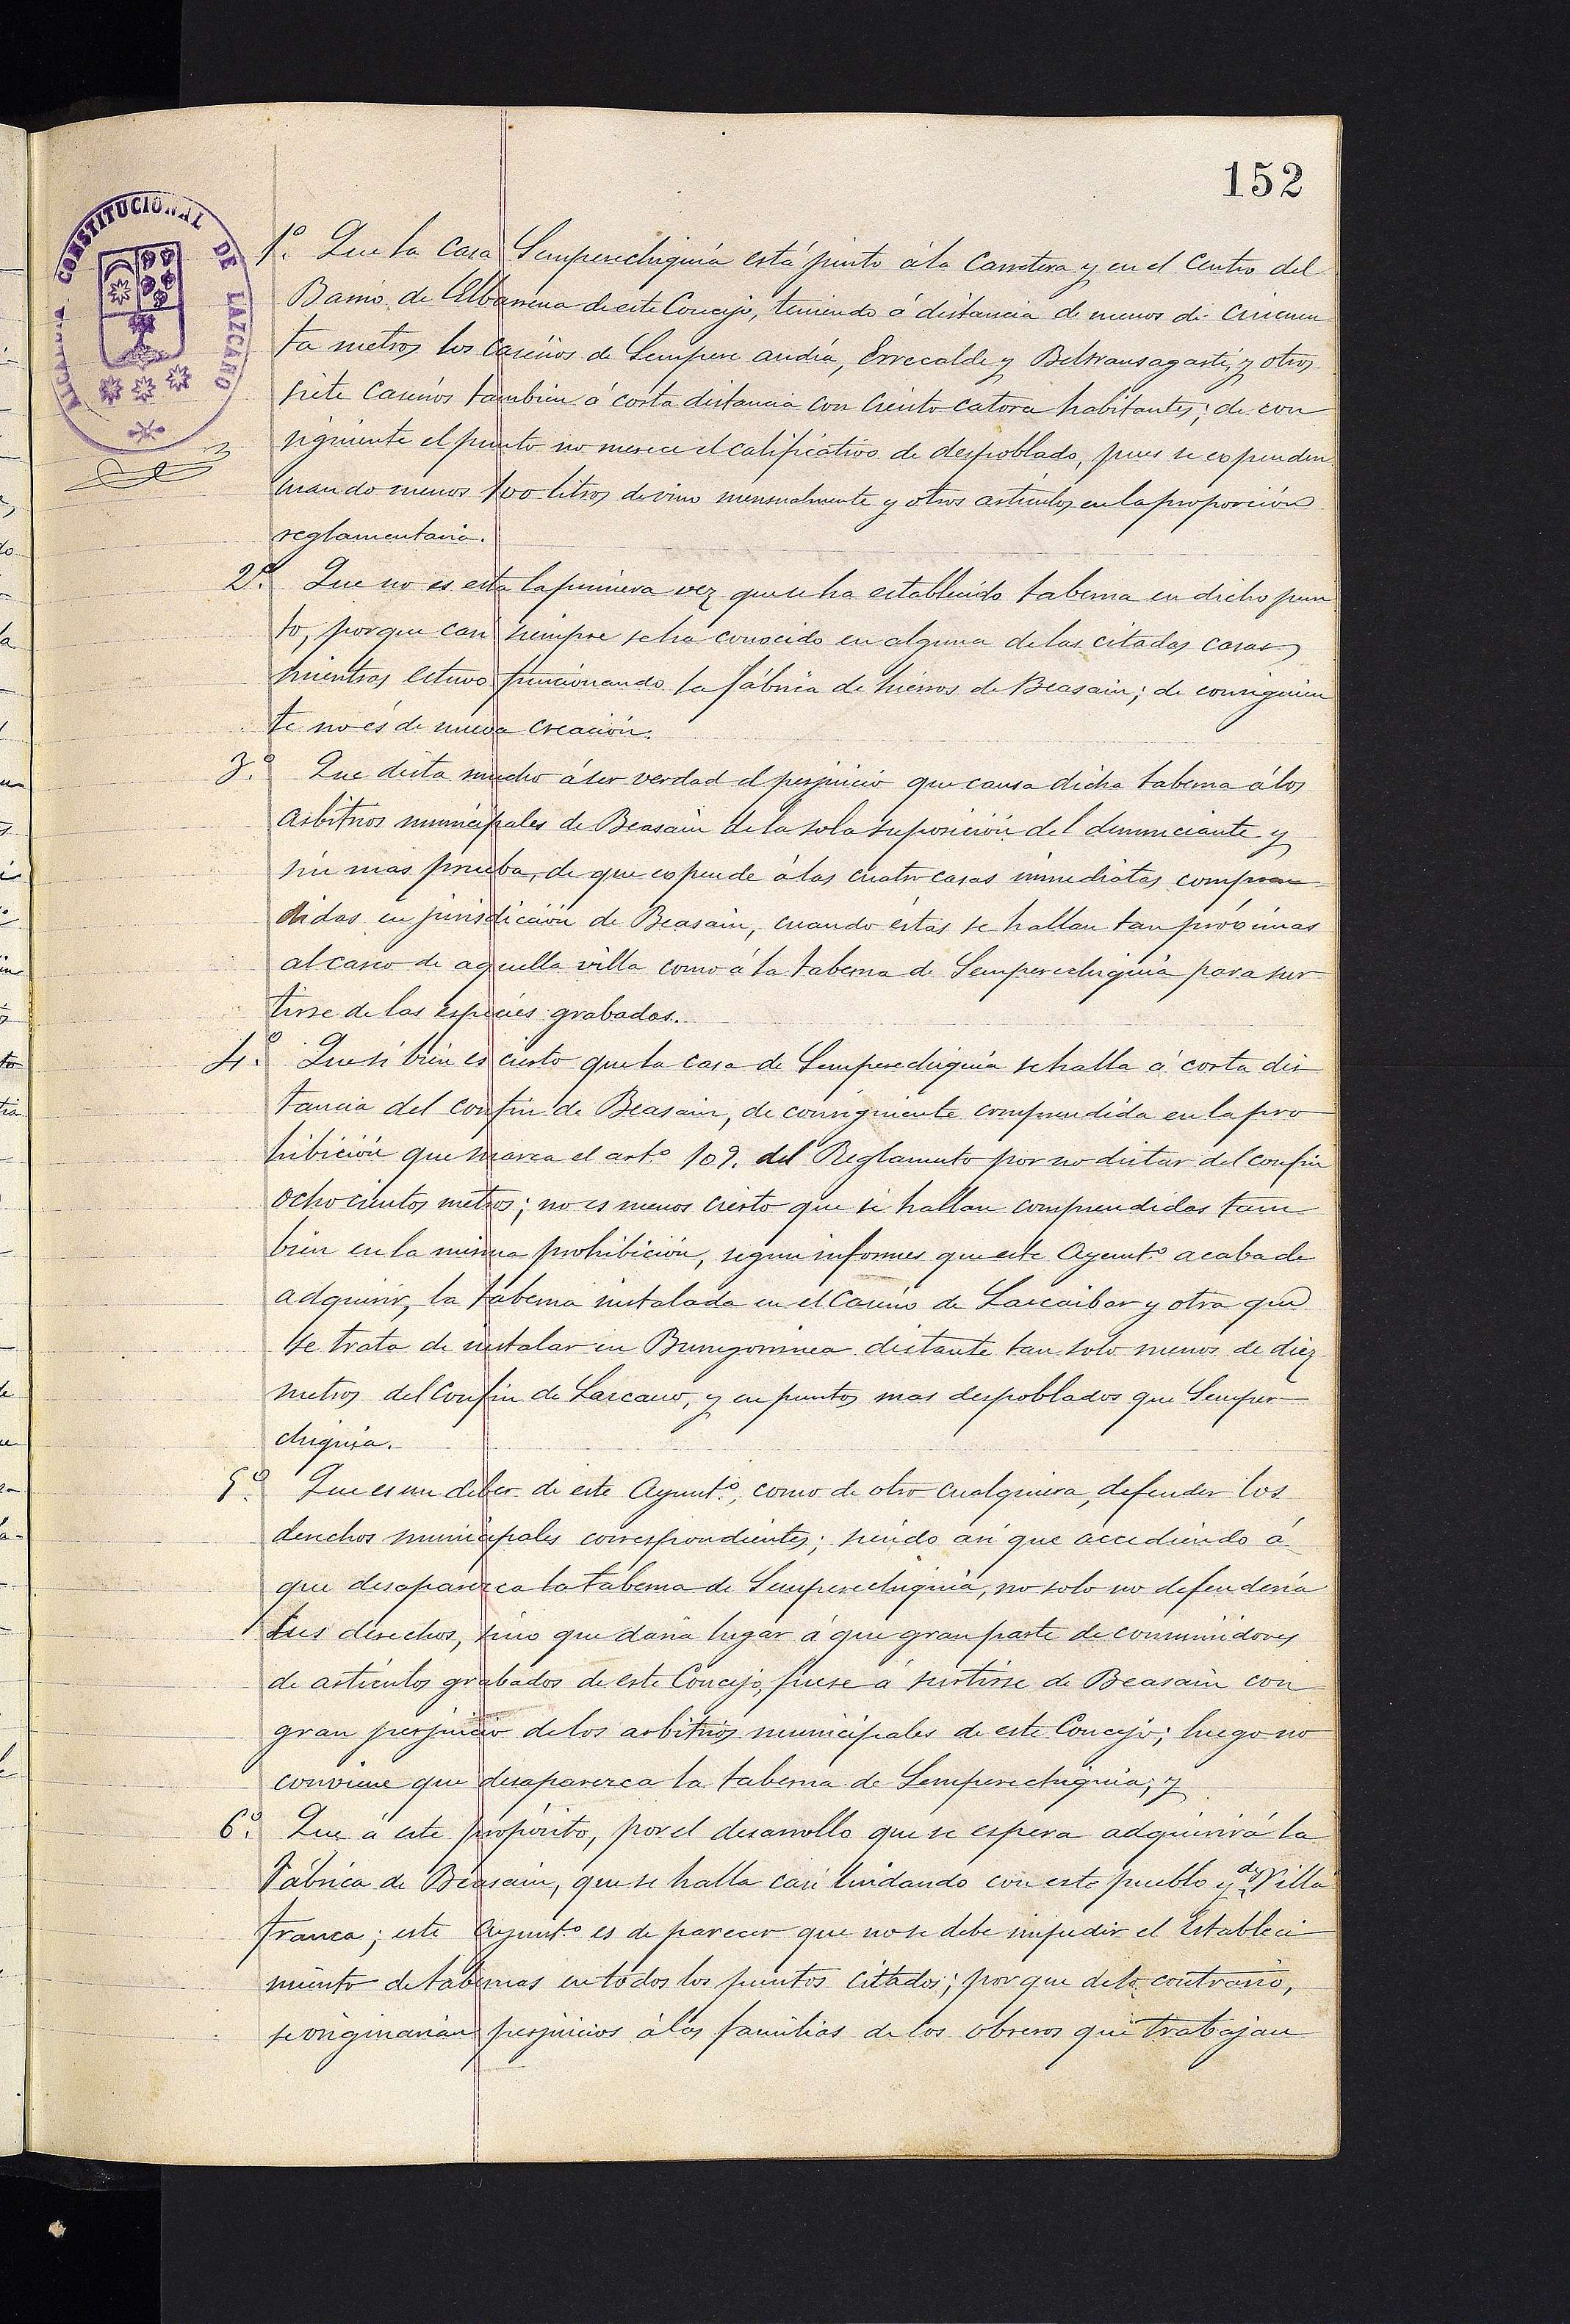 152
ALCALDIA CONSTITUCIONAL DE LAZCANO
1º. Que la casa Semperechiquia está junto á la carretera y en el centro del
Barrio de Elbarrena de este Concejo, teniendo á distancia de menos de cincuen
ta metros los caseríos de Sempere andia, Errecalde y Beltransagasti, y otros
siete caseríos tambien á corta distancia con ciento catorce habitantes; de con
siguiente el punto no merece el calificativo de despoblado, pues se expenden
cuando menos 100 litros de vino mensualmente y otros artículos en la proporción
reglamentaria.
2º. Que no es esta la primera vez que se ha establecido taberna en dicho pun
to, porque casi siempre se ha conocido en alguna de las citadas casas
mientras estuvo funcionando la fábrica de hierros de Beasain; de consiguien
te no és de nueva creación.
3.º Que dista mucho á ser verdad el perjuicio que causa dicha taberna á los
arbitrios municipales de Beasain de la sola suposición del denunciante y
sin mas prueba, de que expende á las cuatro casas inmediatas compren
didas en jurisdicción de Beasain, cuando éstas se hallan tan próximas
al casco de aquella villa como á la taberna de Semperechiquia para sur
tirse de las especies grabadas.
4.º Que si bien es cierto que la casa de Semperechiquia se halla á corta dis
tancia del confin de Beasain, de consiguiente comprendida en la pro
hibición que marca el artº 109. del Reglamento por no distar del confin
ochocientos metros; no es menos cierto que se hallan comprendidas tam
bien en la misma prohibición, segun informes que este Ayuntº acaba de
adquirir, la taberna instalada en el caserío de Lascaibar y otra que
se trata de instalar en distante tan solo menos de diez
metros del confin de Lazcano, y en puntos mas despoblados que Sempere
chiquia.
5º. Que es un deber de este Ayuntº, como de otro cualquiera, defender los
derechos municipales correspondientes; siendo así que accediendo á
que desaparezca la taberna de Semperechiquia, no solo no defendería
sus derechos, sino que daría lugar á que gran parte de consumidores
de artículos grabados de este Concejo, fuese á surtirse de Beasain con
gran perjuicio de los arbitrios municipales de este Concejo; luego no
conviene que desaparezca la taberna de Semperechiquia; y
6º. Que á este propósito, por el desarrollo que se espera adquirirá la
Fábrica de Beasain, que se halla casi lindando con este pueblo y de Villa
franca; este Ayuntº es de parecer que no se debe impedir el estableci
miento de tabernas en todos los puntos citados; por que de lo contrario,
se originarían perjuicios á las familias de los obreros que trabajan